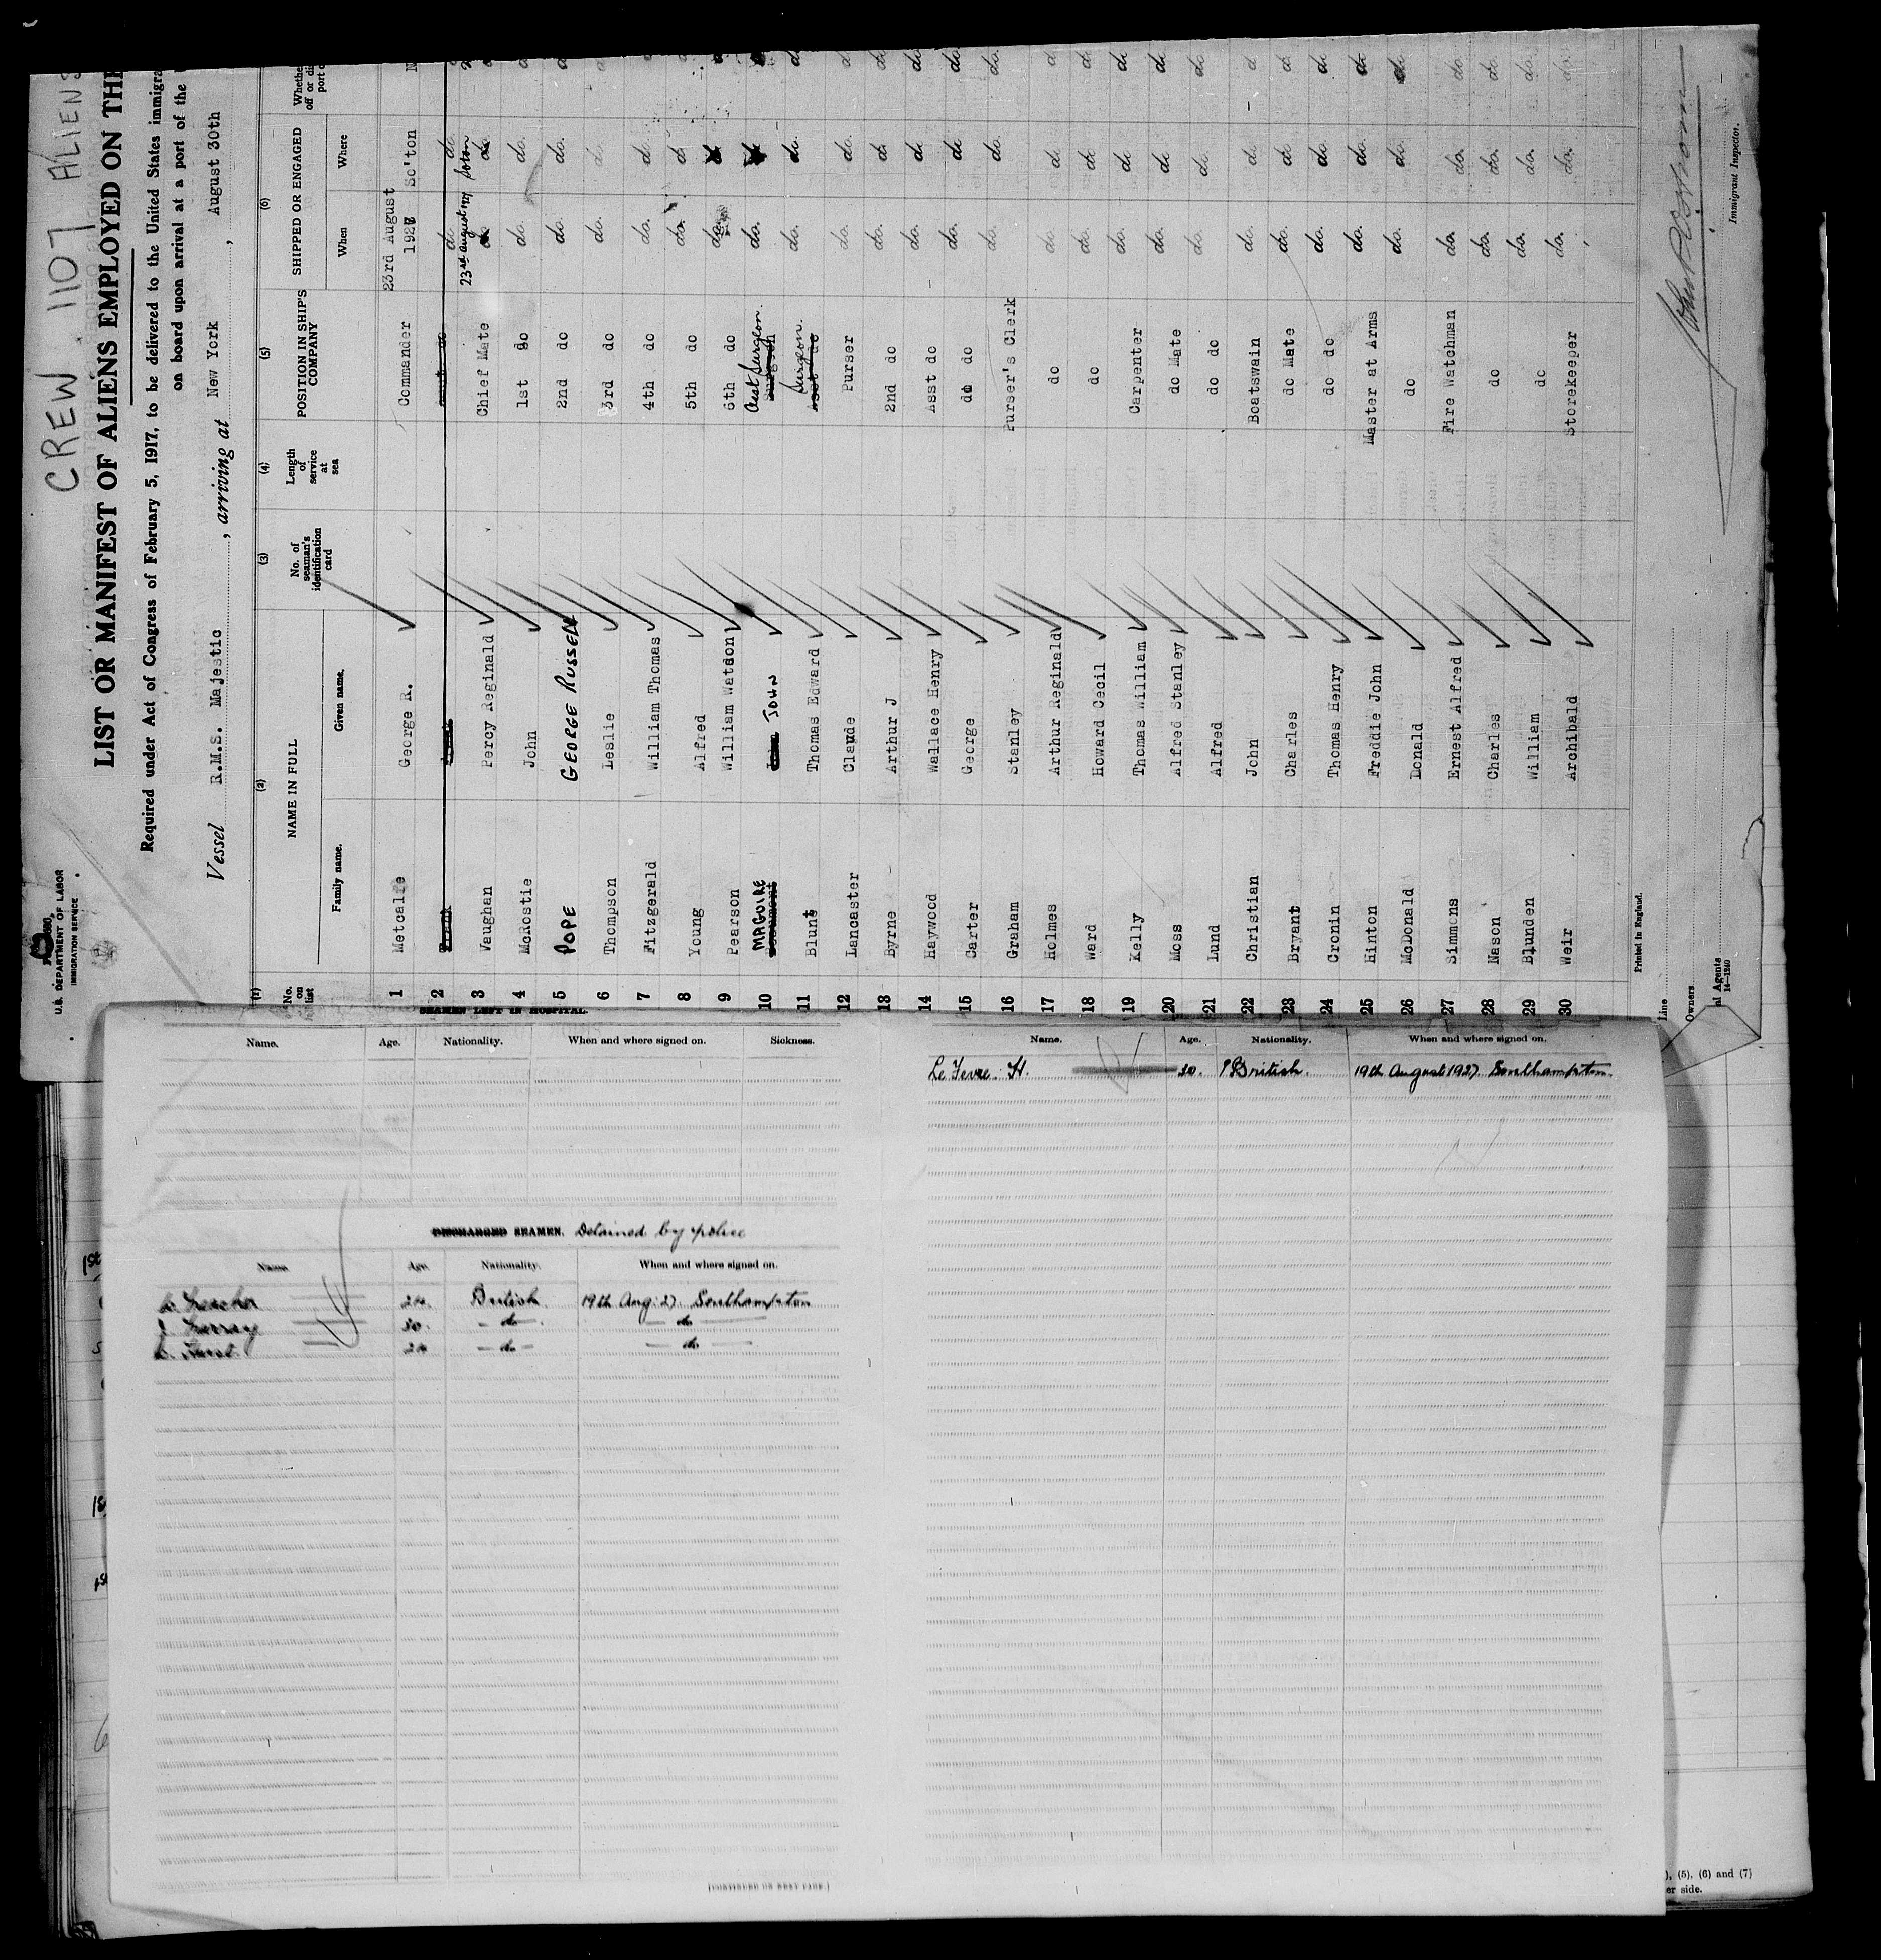 CREW 1107 ALIENS
U.S. DEPARTMENT OF LABOR
IMMIGRATION SERVICE
LIST OR MANIFEST OF ALIENS EMPLOYED ON THE
Required under Act of Congress of February 5, 1917, to be delivered to the United States immigra
on board upon arrival at a port of the
Vessel R.M.S. Majestic, arriving at New York, August 30th
(1) (2) (3) (4) (5) (6)
No. on list NAME IN FULL No. of seaman's identification card Length of service at sea POSITION IN SHIP'S COMPANY SHIPPED OR ENGAGED Whethe off or di port o
Family name. Given name. When Where
1 Metcalfe George R. Commander 23rd August 1927 So'ton
2 do do
3 Vaughan Percy Reginald Chief Mate 23rd August 1927 Soton
4 McRostie John 1st do do. do.
5 POPE GEORGE RUSSELL 2nd do do. do.
6 Thompson Leslie 3rd do do. do.
7 Fitzgerald William Thomas 4th do do. do
8 Young Alfred 5th do do. do
9 Pearson William Watson 6th do do.
10 MAGUIRE JOHN Asst Surgeon do.
11 Blunt Thomas Edward Surgeon. do. do.
12 Lancaster Claude Purser do. do.
13 Byrne Arthur J 2nd do do. do
14 Haywood Wallace Henry Asst do do. do.
15 Carter George do do do. do
16 Graham Stanley Purser's Clerk do. do.
17 Holmes Arthur Reginald do do do
18 Ward Howard Cecil do do. do
19 Kelly Thomas William Carpenter do. do
20 Moss Alfred Stanley do Mate do. do
21 Lund Alfred do do do. do
22 Christian John Boatswain do. do
23 Bryant Charles do Mate do. do
24 Cronin Thomas Henry do do do. do.
25 Hinton Freddie John Master at Arms do. do.
26 McDonald Donald do do. do.
27 Simmons Ernest Alfred Fire Watchman do. do.
28 Nason Charles do do. do.
29 Blunden William do do. do.
30 Weir Archibald Storekeeper do. do.
Printed in England.
Line
Owners.
al Agents
14-1240
Immigrant Inspector.
SEAMEN LEFT IN HOSPITAL.
Name. Age. Nationality. When and where signed on. Sickness.
DISCHARGED SEAMEN. Detained by police
Name. Age. Nationality. When and where signed on.
24. British. 19th Aug: 27. Southampton
J. Murray 30. - do - - do -
24 - do - - do -
(CONTINUED ON NEXT PAGE.)
Name. Age. Nationality. When and where signed on.
Le Fevre H. 30. British. 19th August 1927. Southampton.
), (5), (6) and (7)
er side.